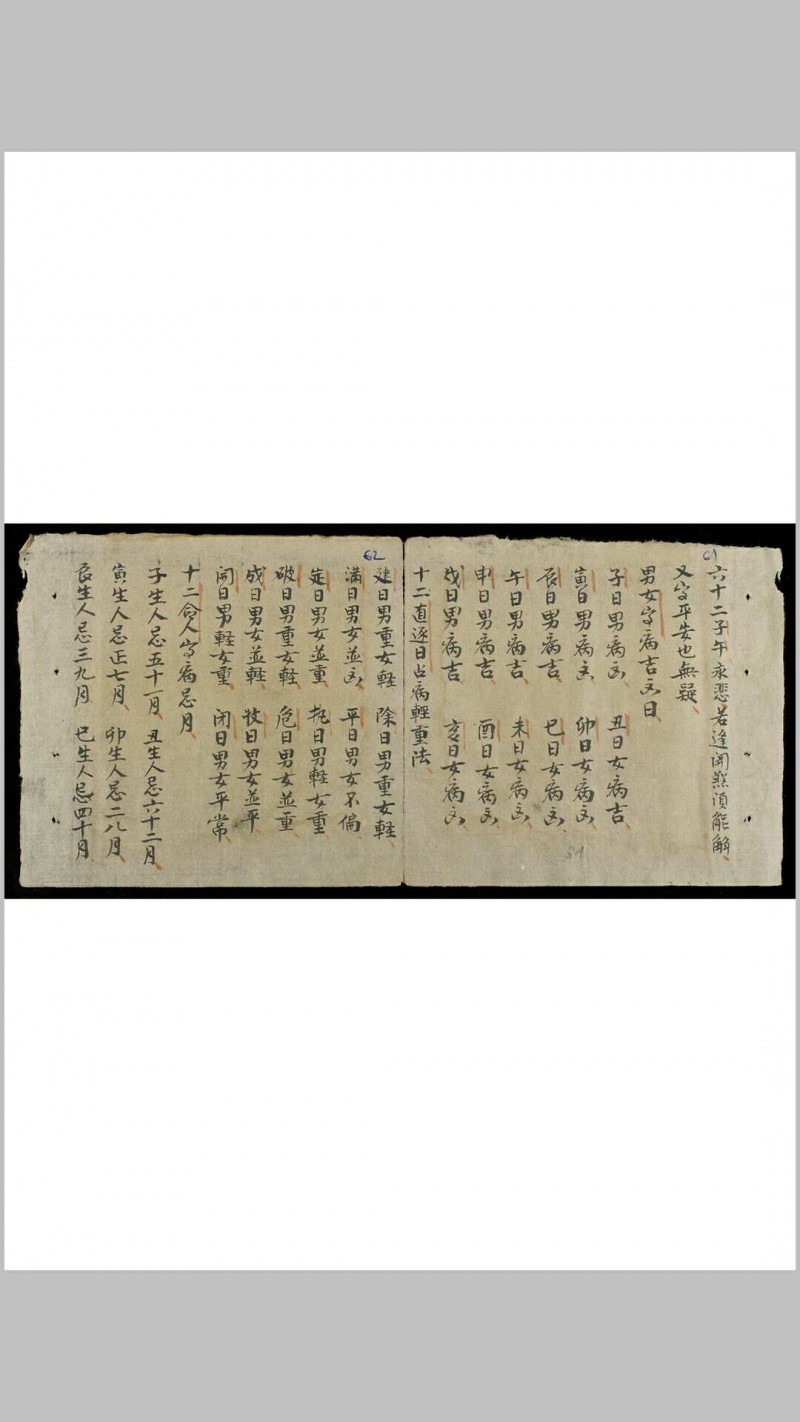 61
六十二子午永悲若逢開煞須能解
又字平安也無疑
男女字病吉凶日
子日男病凶 丑日女病吉
寅日男病凶 卯日女病凶
辰日男病吉 巳日女病凶
午日男病吉 未日女病凶
申日男病吉 酉日女病凶
戌日男病吉 亥日女病凶
十二直逐日占病軽重法
62
建日男重女軽 除日男重女軽
満日男女並凶 平日男女不偏
定日男女並重 执日男軽女重
破日男重女軽 危日男女並重
成日男女並軽 收日男女並平
開日男軽女重 闭日男女平常
十二命人字病忌月
子生人忌五十一月 丑生人忌六十二月
寅生人忌正七月 卯生人忌二八月
辰生人忌三九月 巳生人忌四十月